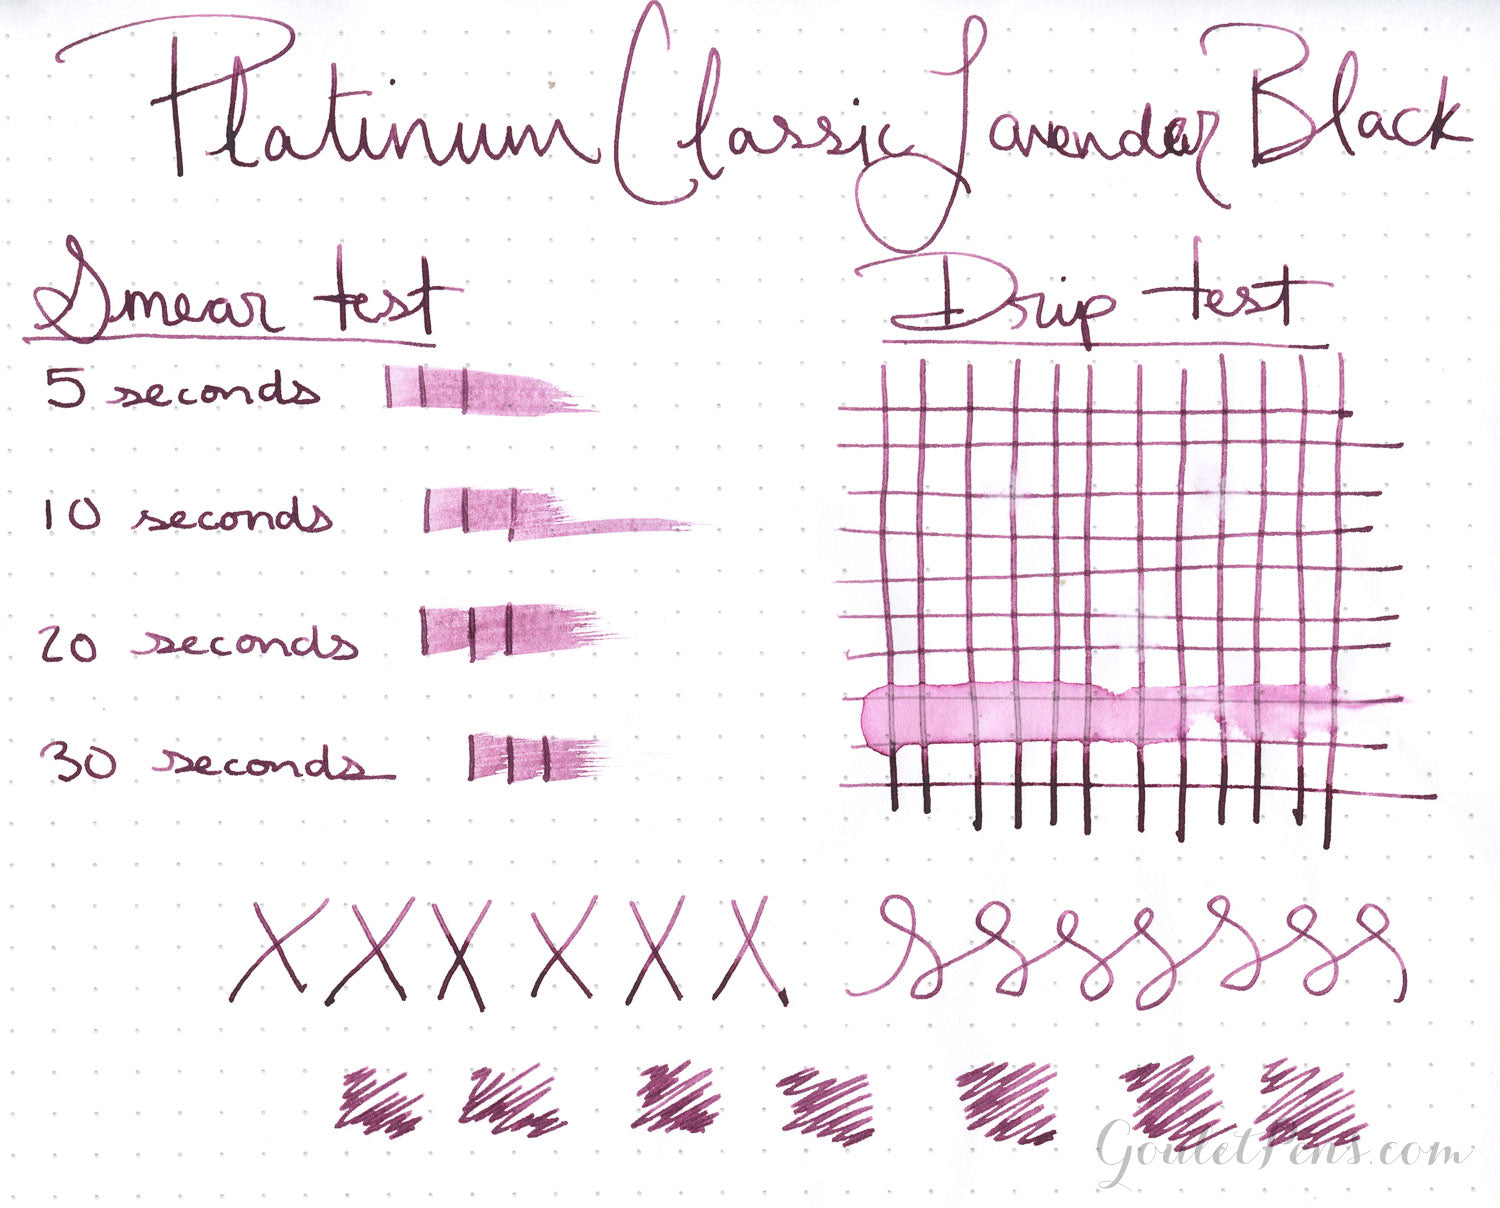 Platinum Classic Lavender Black
Smear test
5 seconds
10 seconds
20 seconds
30 seconds
Drip test
GouletPens.com